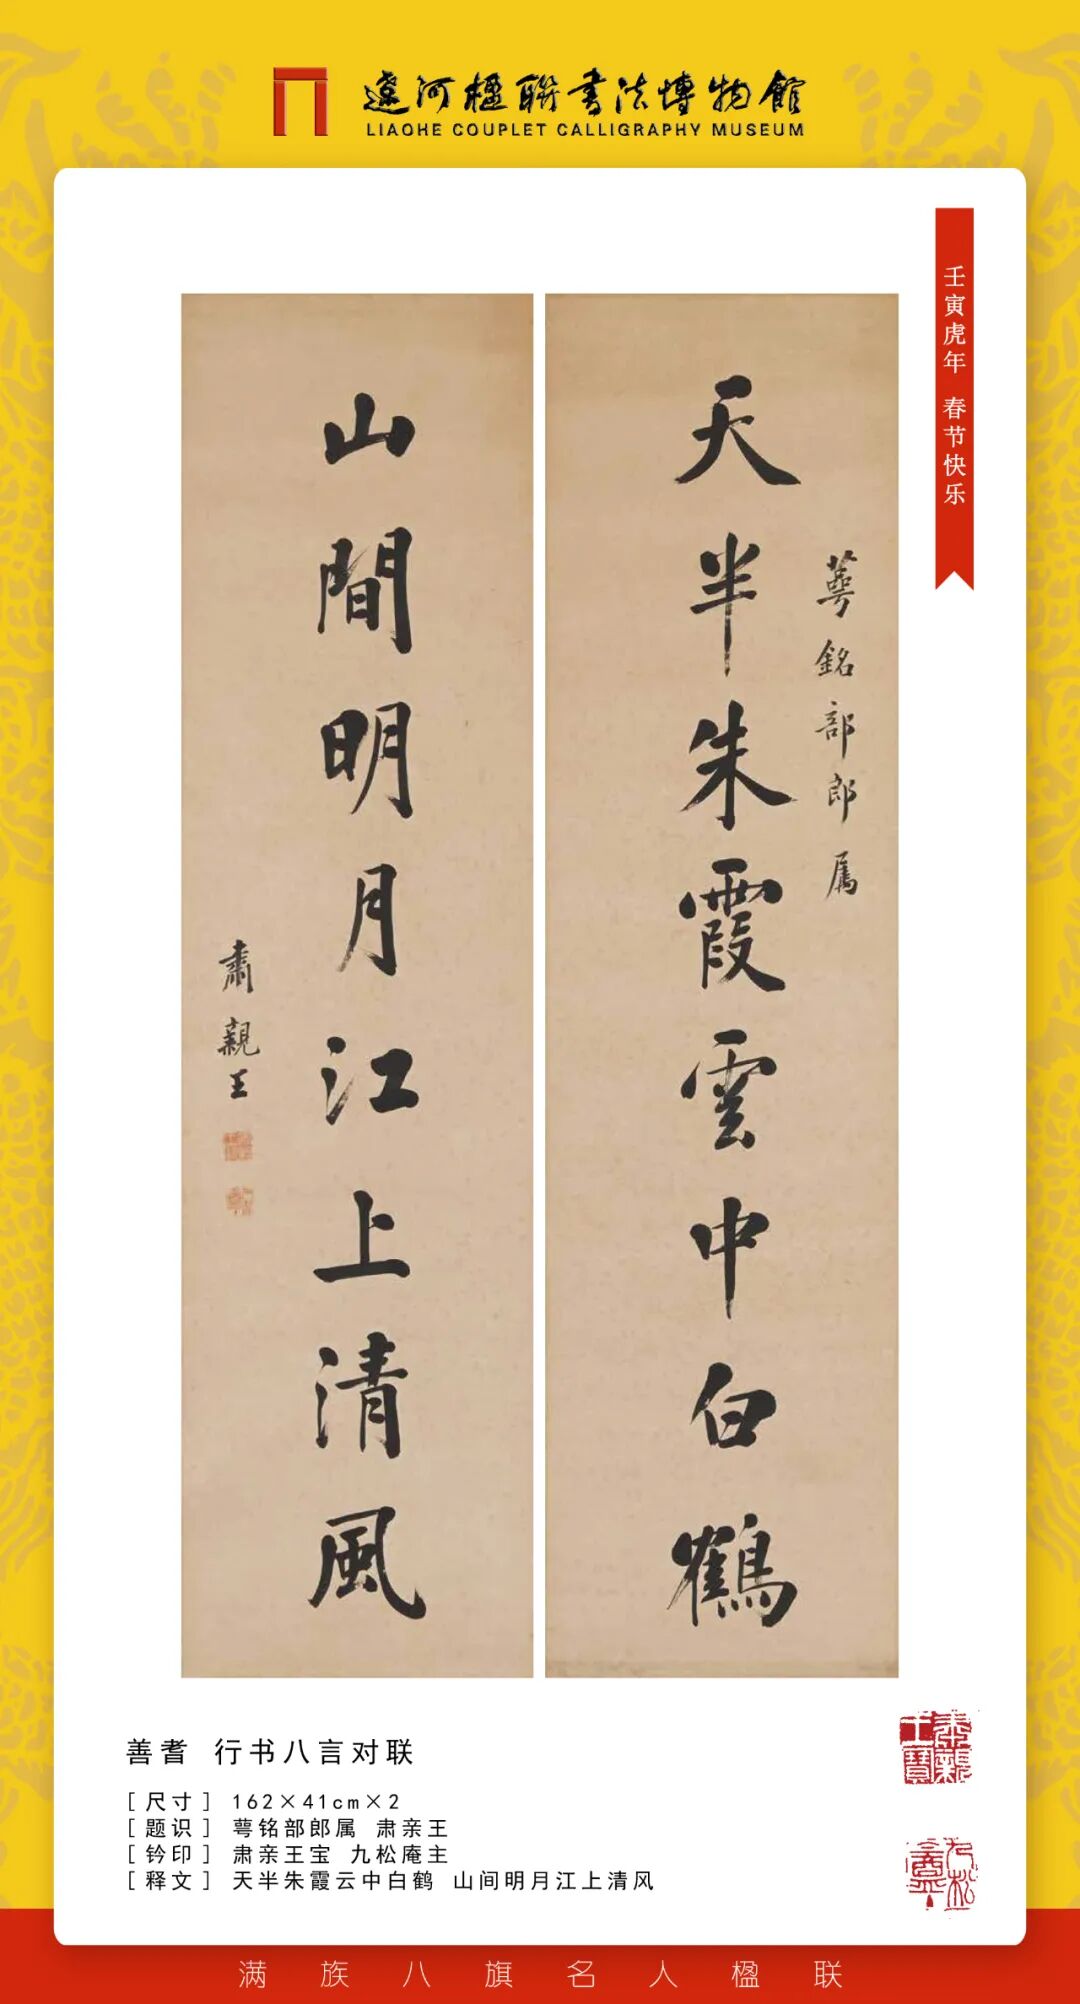 遼河楹聯書法博物館
LIAOHE COUPLET CALLIGRAPHY MUSEUM
壬寅虎年 春节快乐
萼銘部郎属
天半朱霞雲中白鶴
山間明月江上清風
肅親王
善耆 行书八言对联
[尺寸] 162×41cm×2
[题识] 萼铭部郎属 肃亲王
[钤印] 肃亲王宝 九松庵主
[释文] 天半朱霞云中白鹤 山间明月江上清风
肅親王寶
满族八旗名人楹联